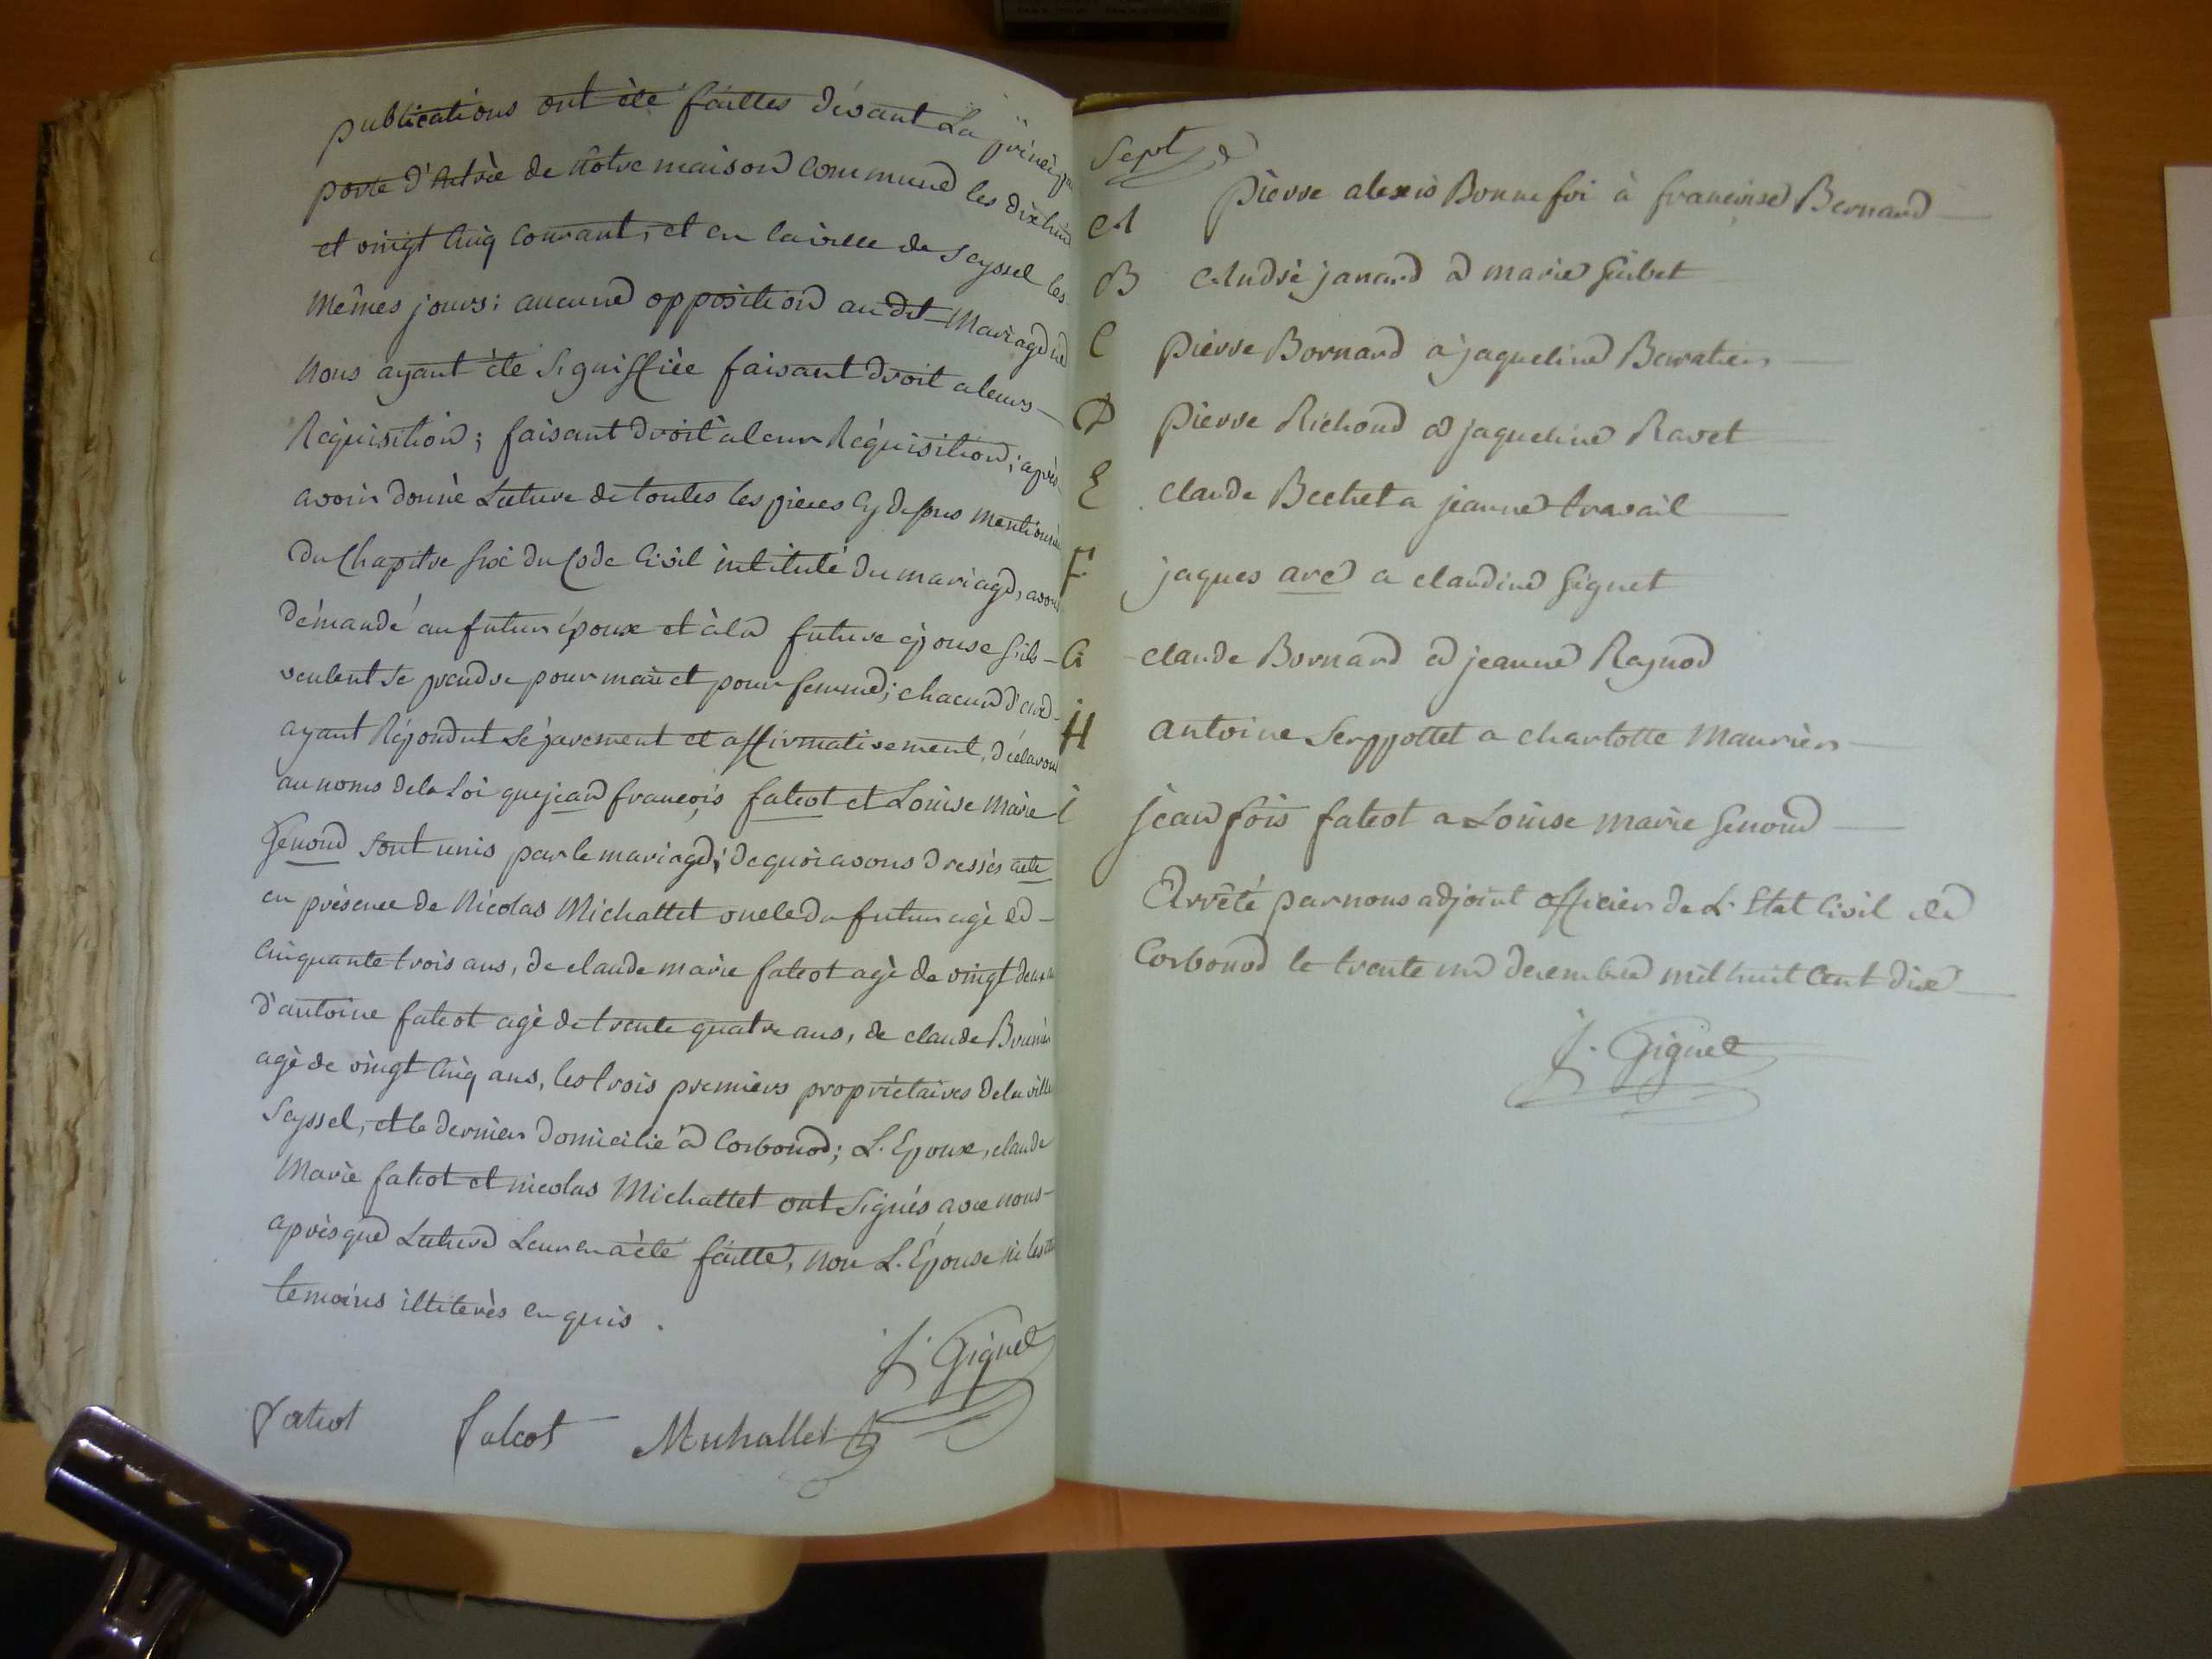 publications ont èté faittes dévant La princip
porte d'Antrèe de nôtre maison Commune les dix huit
et vingt Cinq Courant, et en laville de Seyssel les
mêmes jours: aucune opposition au dit mariage ne
nous ayant èté Signiffièe faisant droit a leurs
Requisition; faisant droit à leur Réquisition; après
avoir donnè Lecture de toutes les pieces Cy dessus mentionnée
du Chapitre six du Code Civil intitulé du mariage, avons
démandé au futur époux et à la future épouse s'ils
veulent se prendre pour mari et pour femme; chacun d'eux
ayant Répondut séparement et affirmativement, déclarons
au noms de la Loi que jean françois falcot et Louise Marie
Genond sont unis par le mariage; de quoi avons dressés acte
en présence de Nicolas Michallet oncle du futur agè de
Cinquante trois ans, de claude marie falcot agè de vingt deux
d'antoine falcot agè de trente quatre ans, de claude
agè de vingt Cinq ans, les trois premiers propriètaires de la ville
Seyssel, et le dernier domicilié à Corbonod; L. Epoux, claude
Marie falcot et nicolas Michallet ont Signés avec nous
après que Lecture Leur en a èté faitte, non L. Épouse ni les
temoins illiterès Enquis.
J. Giguet
falcot falcot Michallet
Sept
A Pierre alexis Bonnefoi à francoise Bernard
B janard a marie Guibet
C Pierre Bornard a jaqueline Baratier
D Pierre Richond a jaqueline Ravet
E claude Bechet a jeanne travail
F jaques arc a claudine Giguet
G claude Bornard a jeanne Raynod
H antoine Serppottet a charlotte Maurier
i jean fois falcot a Louise marie Genond
Arrêté par nous adjoint officier de L'Etat Civil de
Corbonod le trente un decembre mil huit Cent dix
J. Giguet